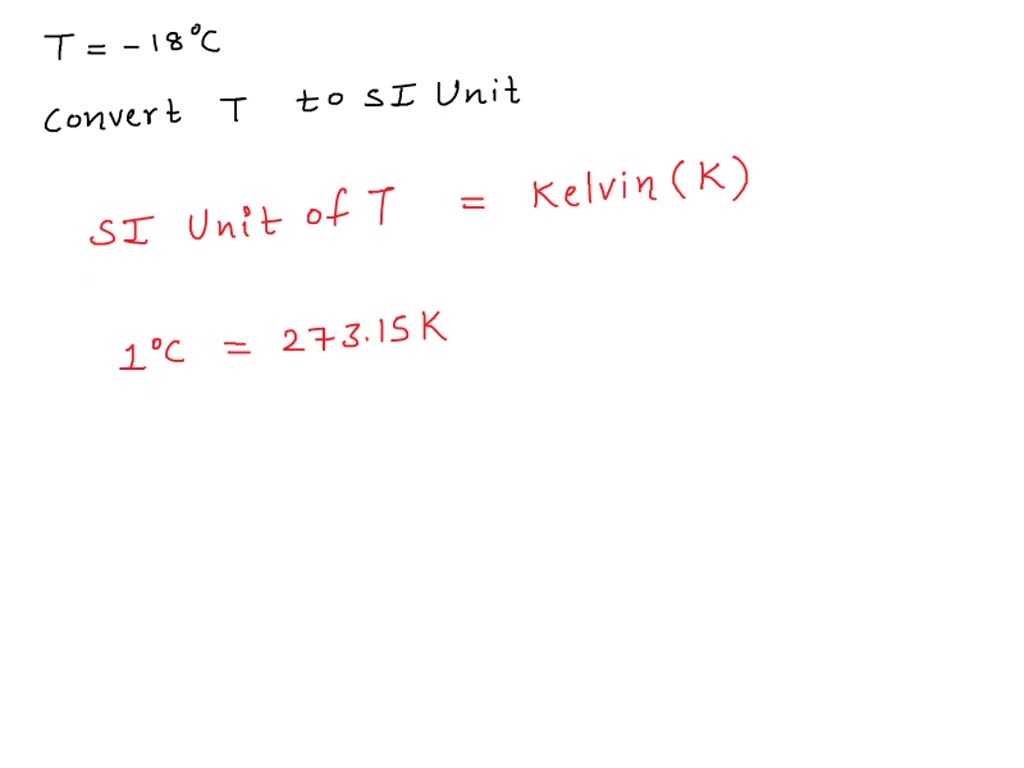 T = -18°C
Convert T to SI Unit
SI Unit of T = Kelvin (K)
1°C = 273.15 K